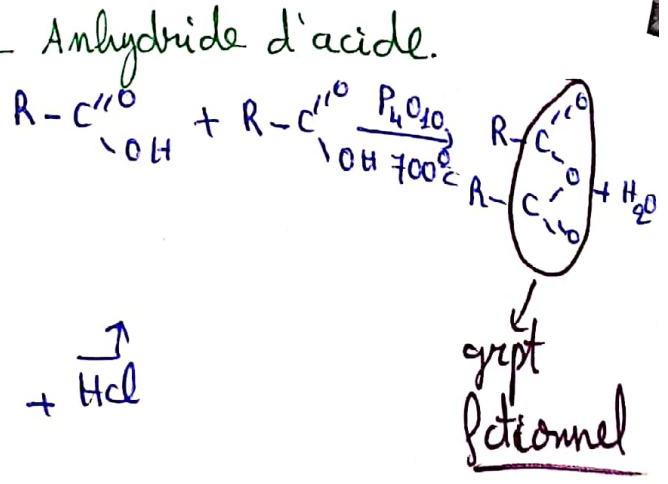 - Anhydride d'acide.
R - C = O \ OH + R - C = O \ OH P4O10 700°C R - C = O \ O / R - C = O + H2O
+ HCl ↑
grpt
fctionnel